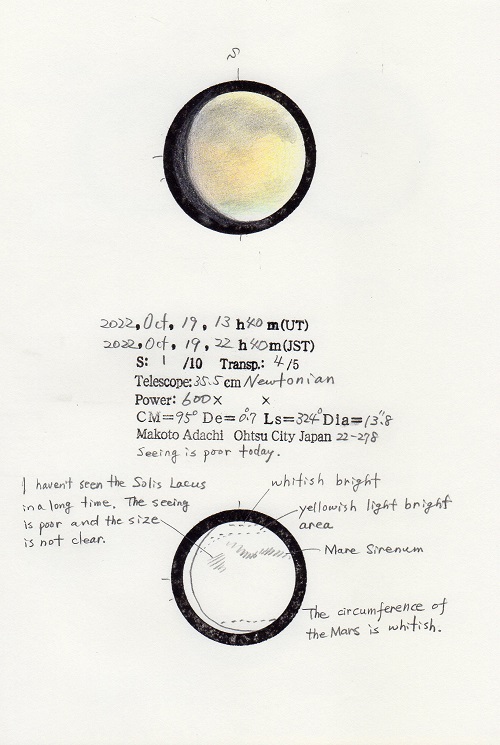 S
2022, Oct, 19, 13 h 40 m (UT)
2022, Oct, 19, 22 h 40 m (JST)
S: 1 /10 Transp.: 4/5
Telescope: 35.5 cm Newtonian
Power: 600 × ×
CM=95° De=0.°7 Ls=324° Dia=13."8
Makoto Adachi Ohtsu City Japan 22-278
Seeing is poor today.
I haven't seen the Solis Lacus
in a long time. The seeing
is poor and the size
is not clear.
whitish bright
yellowish light bright
area
Mare Sirenum
The circumference of
the Mars is whitish.